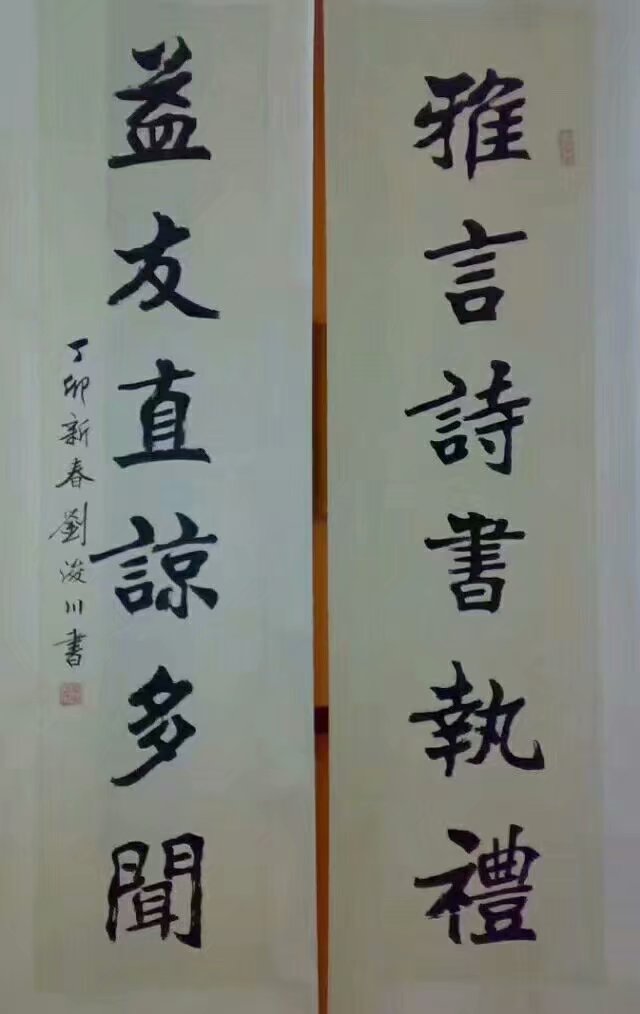 雅言詩書執禮
益友直諒多聞
丁卯新春劉浚川書